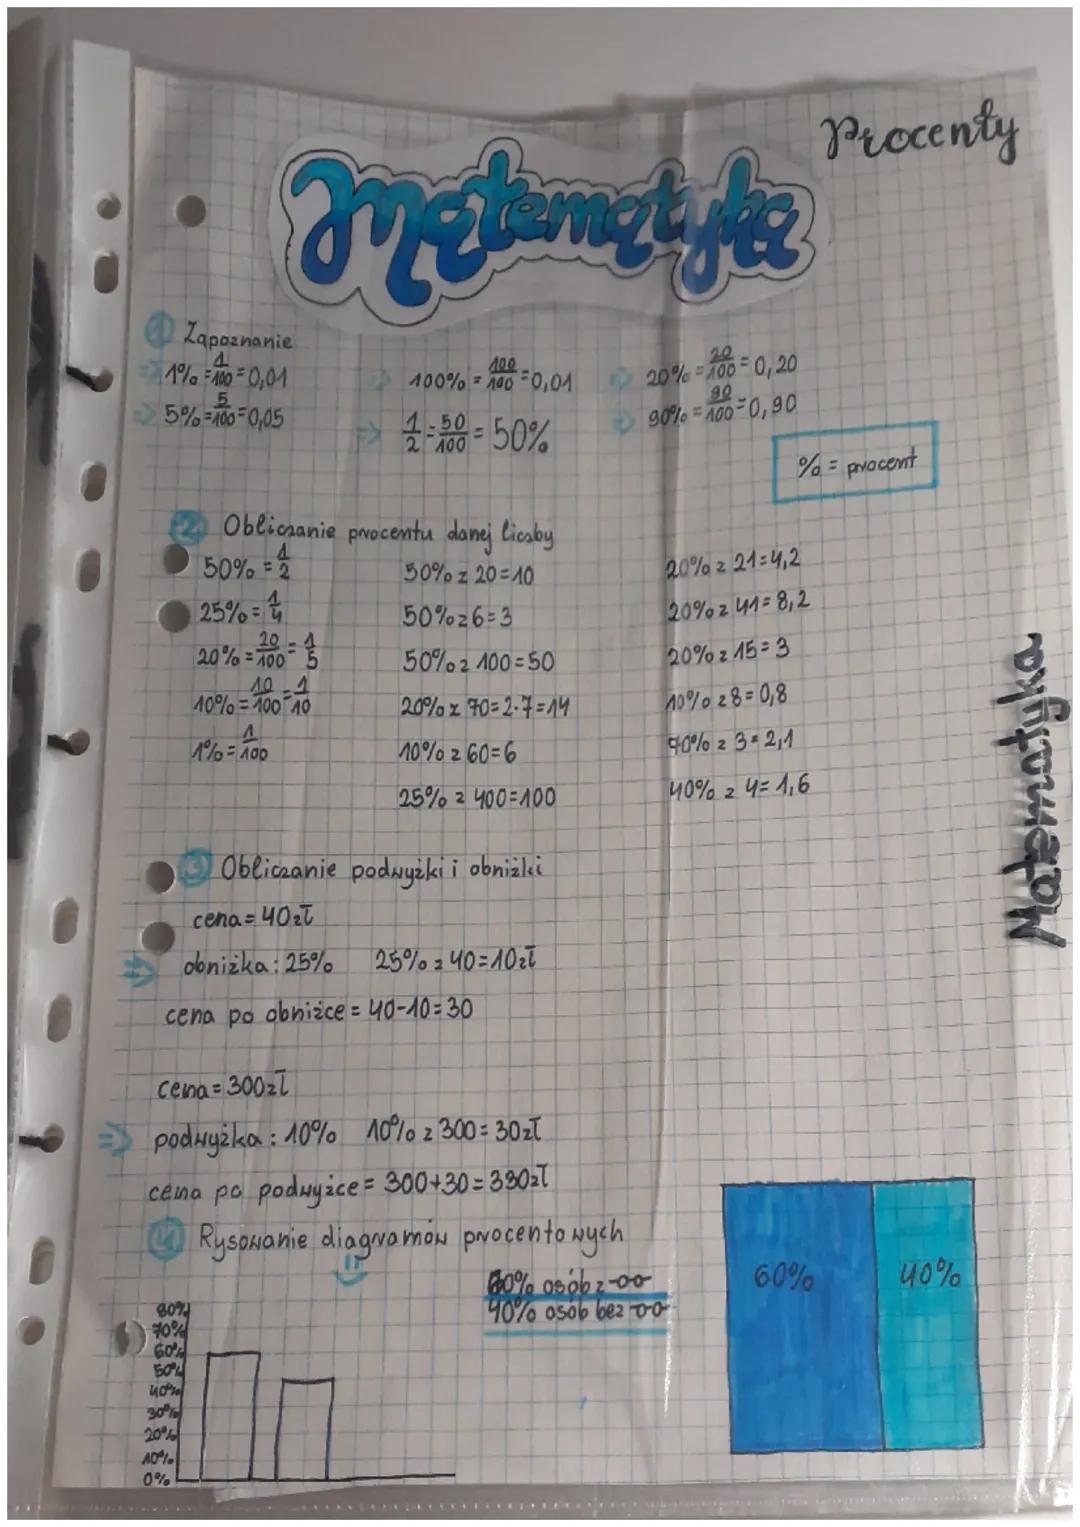 Procenty
Matematyka
1 Zapoznanie
⇒ 1% = 1/100 = 0,01
⇒ 5% = 5/100 = 0,05
⇒ 100% = 100/100 = 0,01
⇒ 1/2 = 50/100 = 50%
⇒ 20% = 20/100 = 0,20
⇒ 90% = 90/100 = 0,90
% = procent
2 Obliczanie procentu danej liczby
50% = 1/2
25% = 1/4
20% = 20/100 = 1/5
10% = 10/100 = 1/10
1% = 1/100
50% z 20 = 10
50% z 6 = 3
50% z 100 = 50
20% z 70 = 2·7 = 14
10% z 60 = 6
25% z 400 = 100
20% z 21 = 4,2
20% z 41 = 8,2
20% z 15 = 3
10% z 8 = 0,8
70% z 3 = 2,1
40% z 4 = 1,6
Matematyka
3 Obliczanie podwyżki i obniżki
cena = 40zł
⇒ obniżka: 25% 25% z 40 = 10zł
cena po obniżce = 40-10 = 30
cena = 300zł
⇒ podwyżka: 10% 10% z 300 = 30zł
cena po podwyżce = 300+30 = 330zł
4 Rysowanie diagramów procentowych
60% osób z
40% osób bez
80%
70%
60%
50%
40%
30%
20%
10%
0%
60%
40%